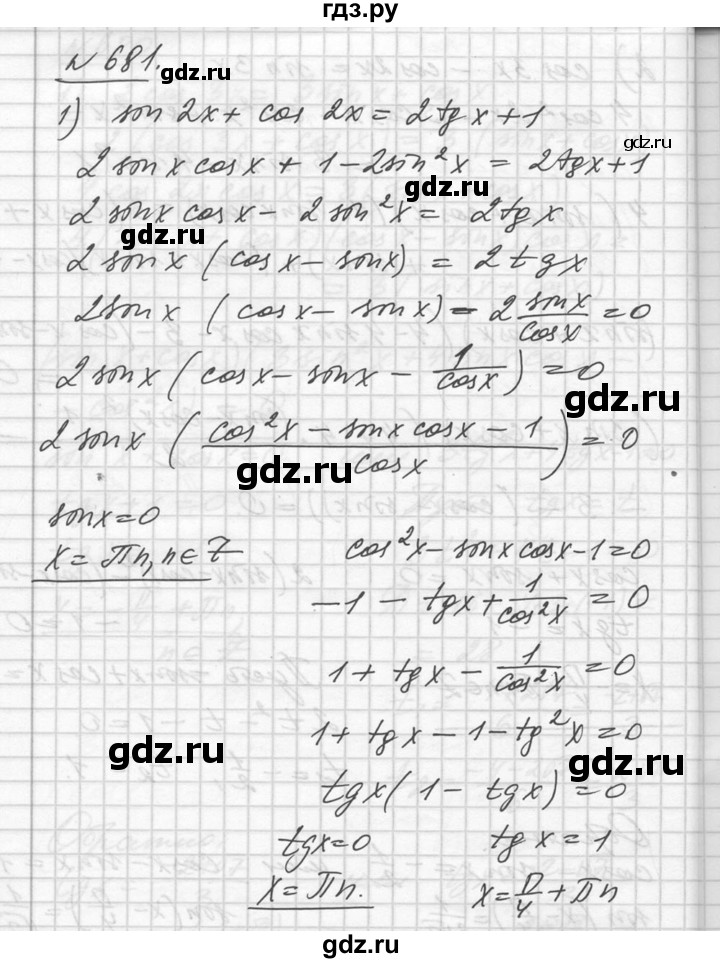 гдз.ру
№ 681.
gdz.ru
1) sin 2x + cos 2x = 2tg x + 1
gdz.ru
2 sin x cos x + 1 - 2sin²x = 2tgx + 1
gdz.ru
2 sin x cos x - 2 sin²x = 2tg x
gdz.ru
2 sin x (cos x - sin x) = 2tg x
2sin x (cos x - sin x) - 2 sin x / cos x = 0
2 sin x (cos x - sin x - 1 / cos x) = 0
gdz.ru
2 sin x ((cos²x - sin x cos x - 1) / cos x) = 0
gdz.ru
sin x = 0
x = πn, n ∈ Z
cos²x - sin x cos x - 1 = 0
-1 - tg x + 1 / cos²x = 0
1 + tg x - 1 / cos²x = 0
1 + tg x - 1 - tg²x = 0
gdz.ru
gdz.ru
tg x (1 - tg x) = 0
tg x = 0 tg x = 1
x = πn. x = π/4 + πn
gdz.ru